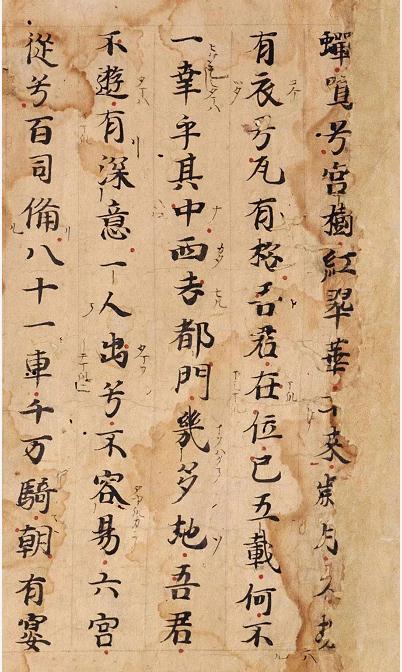 蟬鳴兮宮樹紅翠華不来歳月久墻
有衣兮瓦有松吾君在位已五載何不
一幸乎其中西去都門幾多地吾君
不遊有深意一人出兮不容易六宮
従兮百司備八十一車千万騎朝有宴